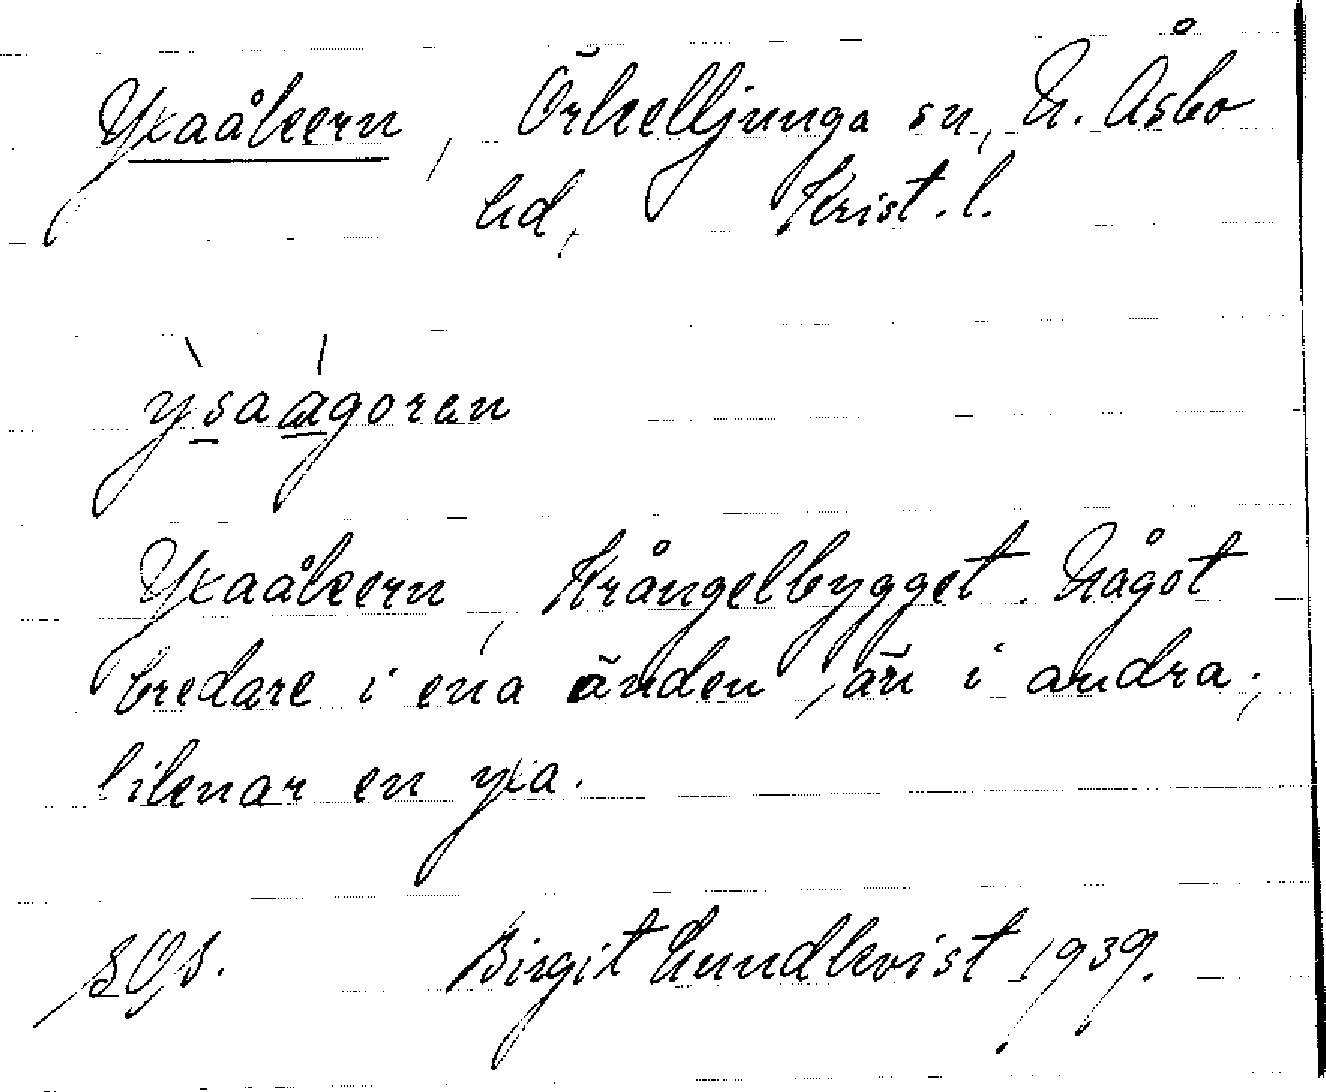 Yxaåkern, Örkelljunga sn, N. Åsbo
hd, Krist. l.
ỳsaágoran
Yxaåkern, Krångelbygget. Något
bredare i ena änden, än i andra,
liknar en yxa.
Birgit Lundkvist 1939.